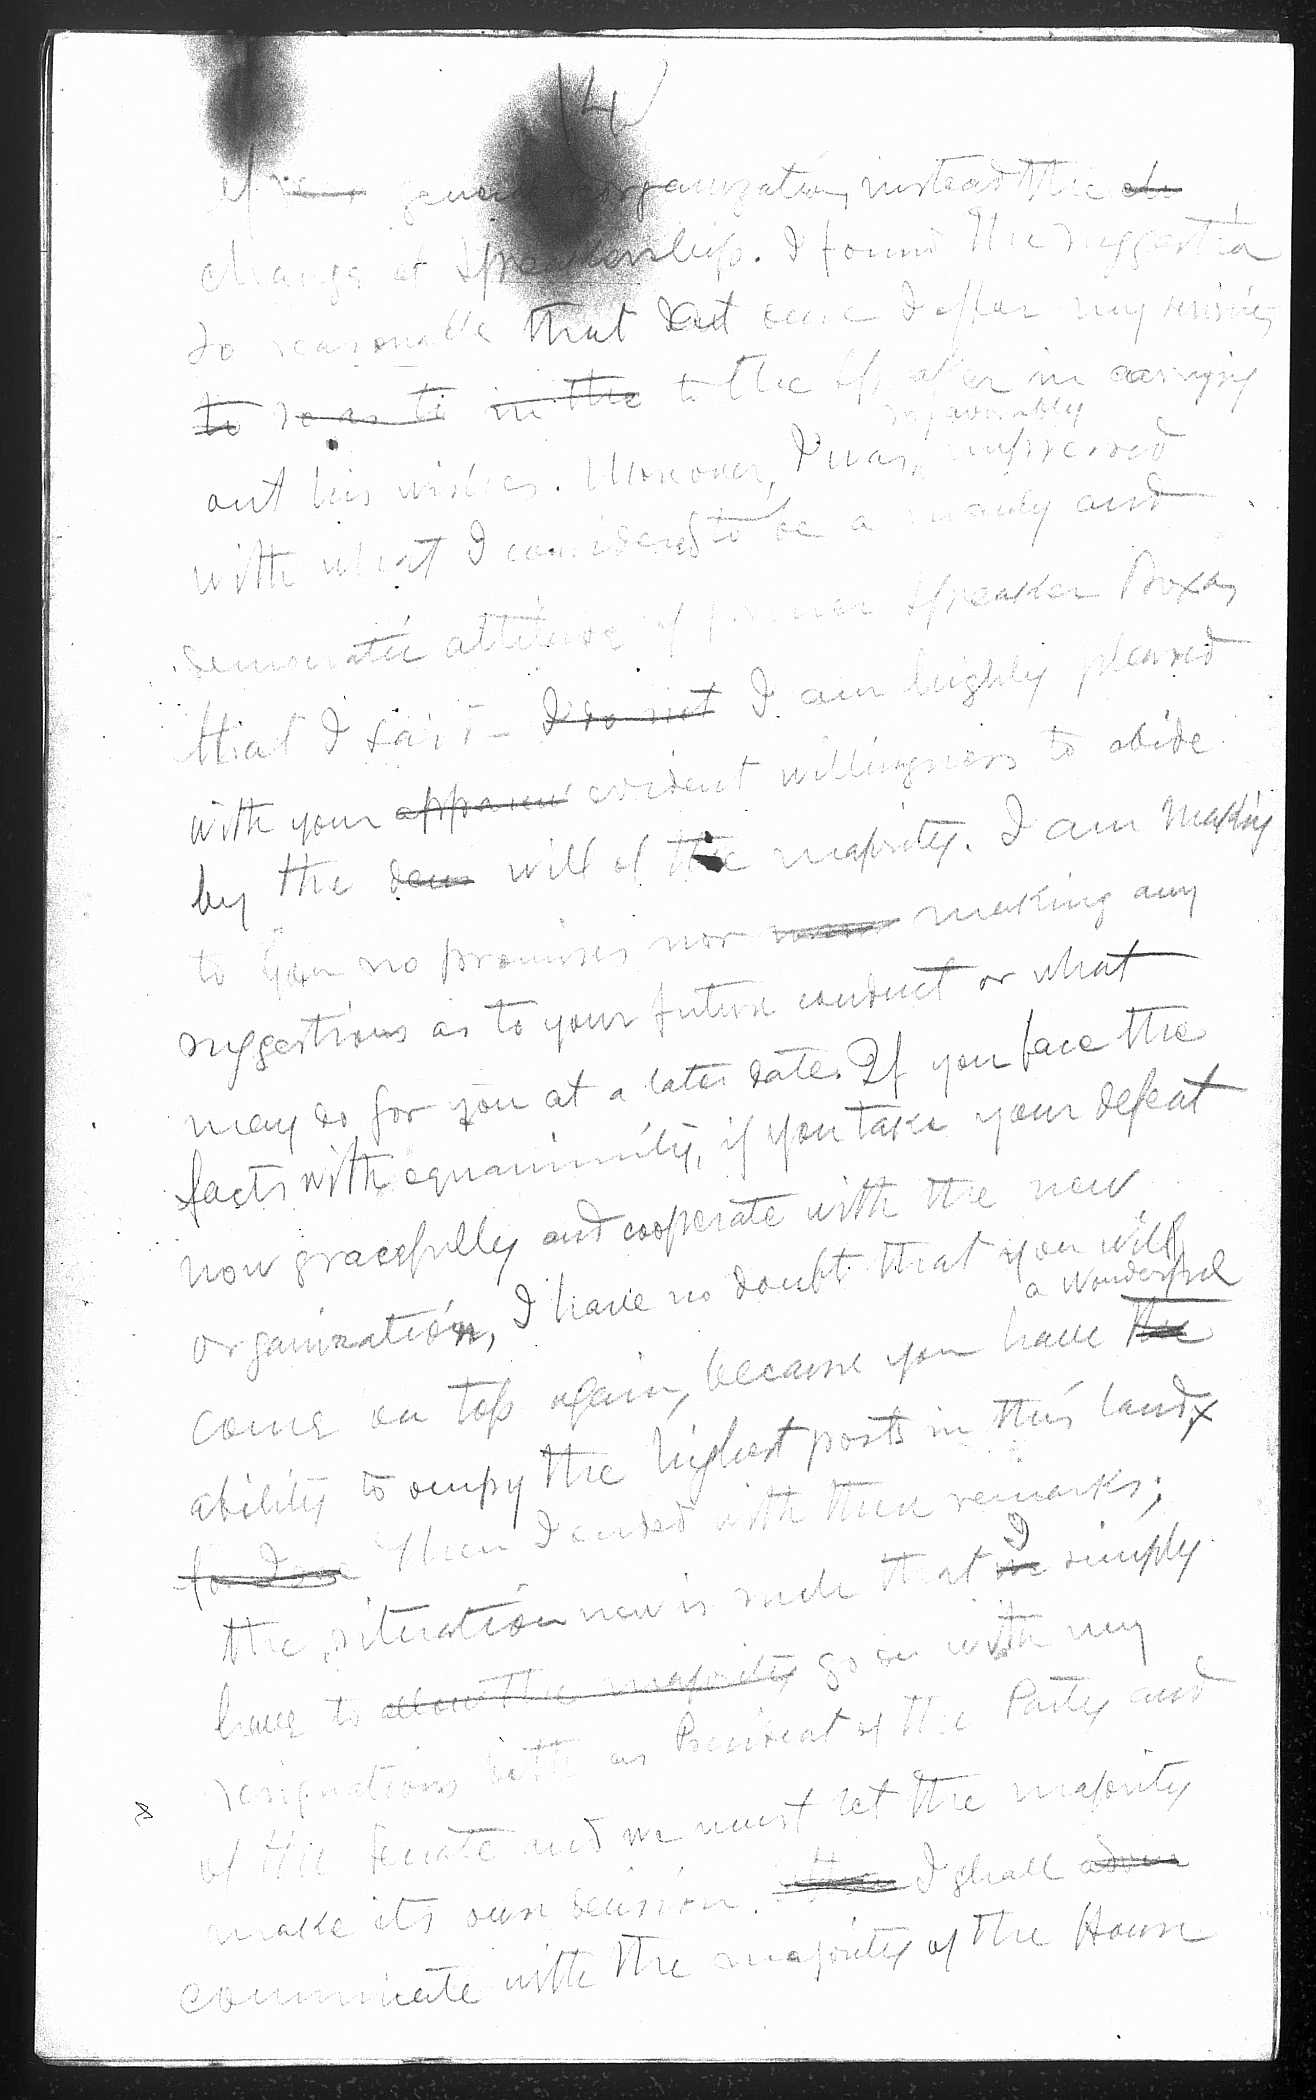 14
of general organization, instead the
change of Speakership. I found the suggestion
so reasonable that at once I offer my services
to so as to in the to the Speaker in carrying
out his wishes. Moreover, I was so favorably impressed
with what I considered to be a manly and
democratic attitude of former Speaker Roxas,
that I said – I do not I am highly pleased
with your apparent evident willingness to abide
by the dem will of the majority. I am making
to you no promises nor making any
suggestions as to your future conduct or what
may do for you at a later date. If you face the
facts with equanimity, if you take your defeat
now gracefully and cooperate with the new
organization, I have no doubt that you will
come on top again, because you have the a wonderful
ability to occupy the highest posts in this land
Then I ended with these remarks;
the situation now is such that we I simply
have to allow the majority go on with my
resignations both as President of the Party and
of the Senate and we must let the majority
make its own decision. I shall
comunicate with the majority of the House